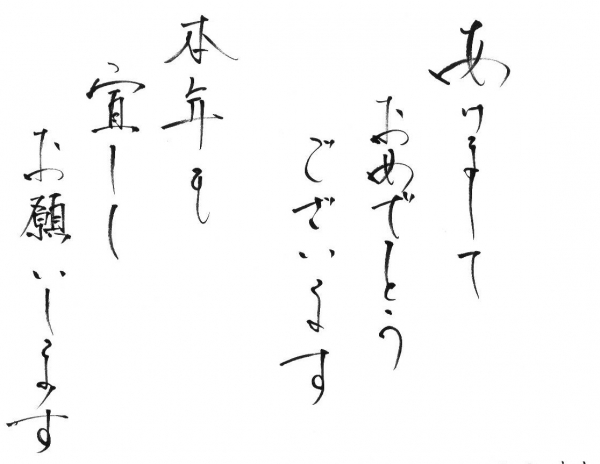 あけまして
おめでとう
ございます
本年も
宜しく
お願いします